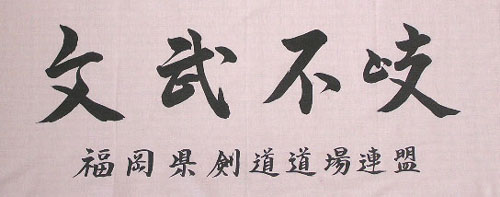 文武不岐
福岡県剣道道場連盟